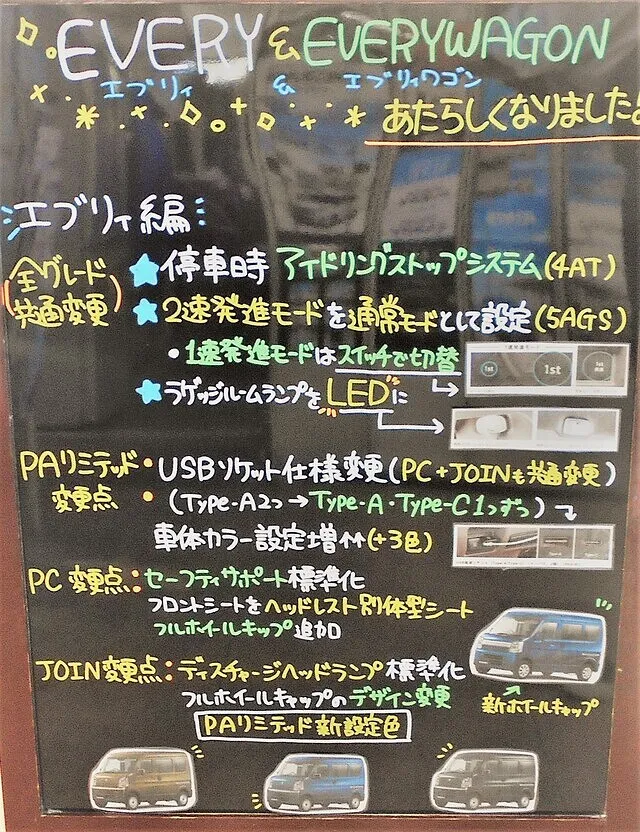 EVERY & EVERYWAGON
エブリィ & エブリィワゴン
あたらしくなりました
エブリィ編
全グレード共通変更
★停車時 アイドリングストップシステム(4AT)
★2速発進モードを通常モードとして設定(5AGS)
・1速発進モードはスイッチで切替
1st 1st 1st
★ラゲッジルームランプをLEDに
PAリミテッド変更点
・USBソケット仕様変更(PC+JOINも共通変更)
・(Type-A2つ→Type-A・Type-C1つずつ)
車体カラー設定増↑↑(+3色)
PC変更点:セーフティサポート標準化
フロントシートをヘッドレスト別体型シート
フルホイールキャップ追加
新ホイールキャップ
JOIN変更点:ディスチャージヘッドランプ標準化
フルホイールキャップのデザイン変更
PAリミテッド新設定色